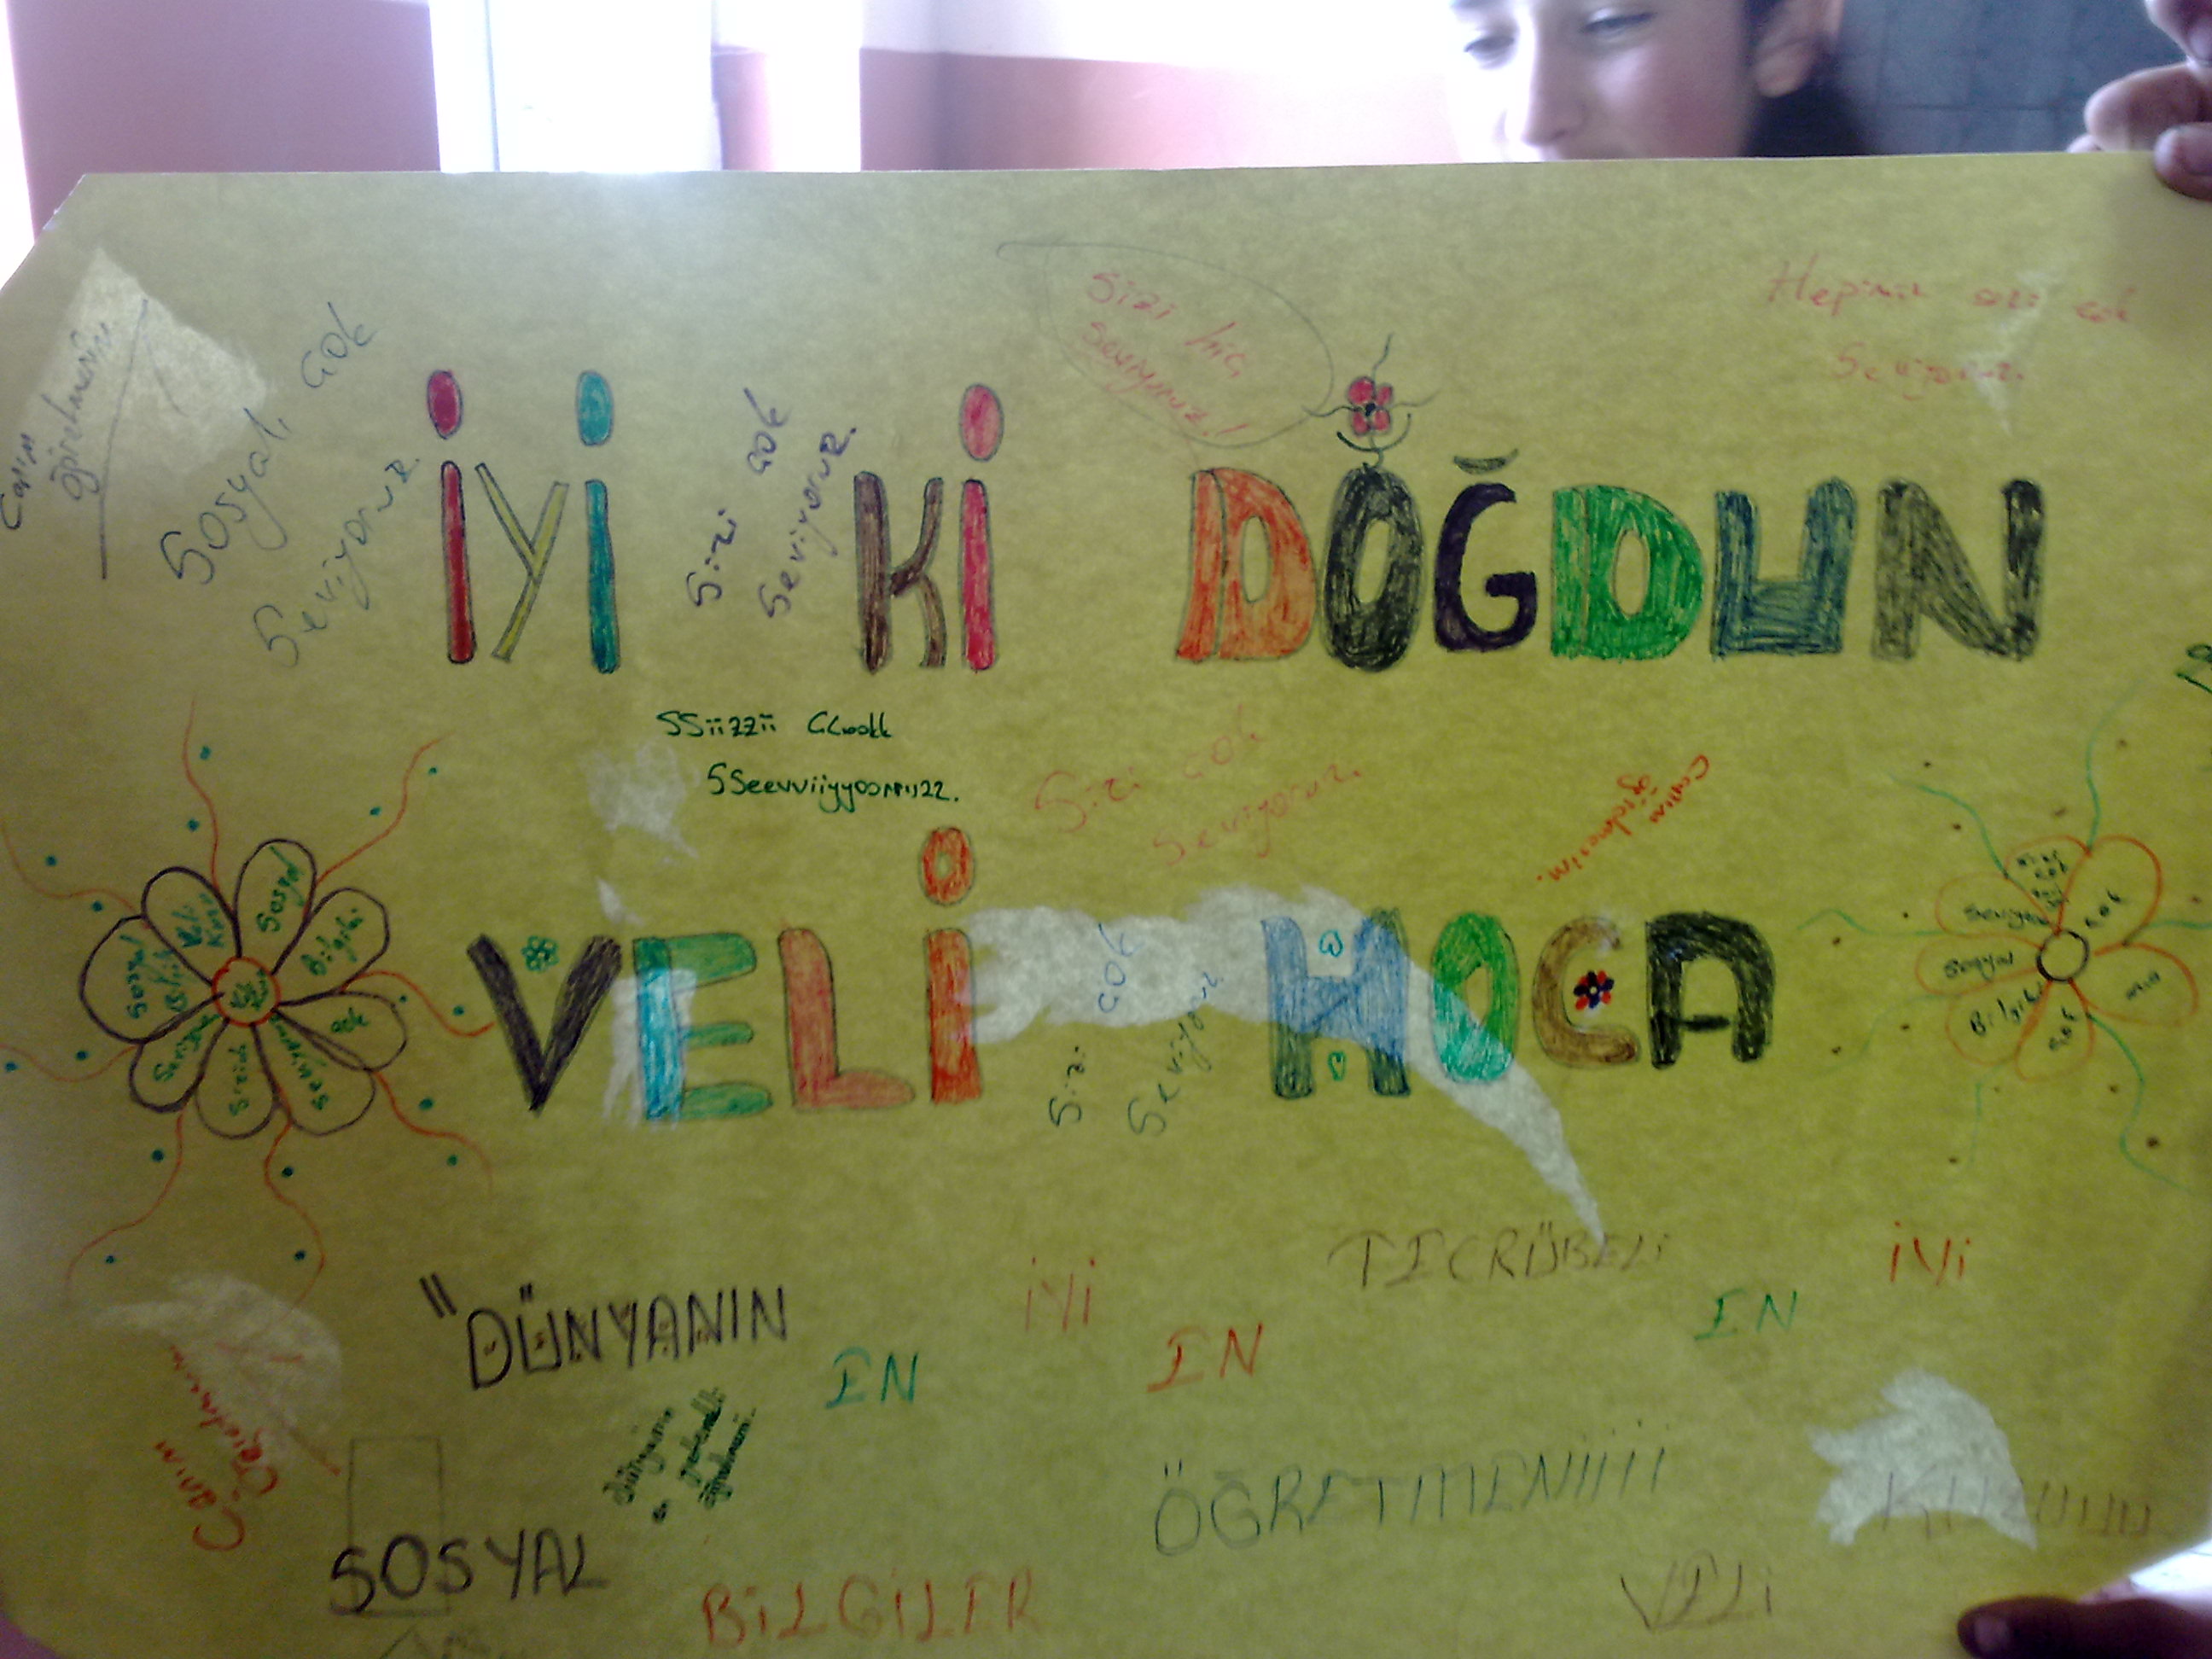 Canım
öğretmenim
Sosyali çok
Seviyoruz.
Sizi çok
Seviyoruz.
Sizi hiç
sevmiyoruz!
Hepimiz sizi çok
Seviyoruz.
İYİ Kİ DOĞDUN
SSiizzii ÇÇookk
SSeevviiyyoorruuzz.
Sizi çok
Seviyoruz.
Canım
öğretmenim.
VELİ HOCA
Sizi çok
Seviyoruz
Sosyal
Bilgiler
Çok
Seviyoruz
Sizi çok
Seviyoruz
Sosyal
Bilgiler
Çok
"DÜNYANIN
EN
İYİ
EN
TECRÜBELİ
EN
İYİ
Canım
Öğretmenim
Dünyanın
en
öğretmeni.
SOSYAL
BİLGİLER
ÖĞRETMENİİİİ
VELİ